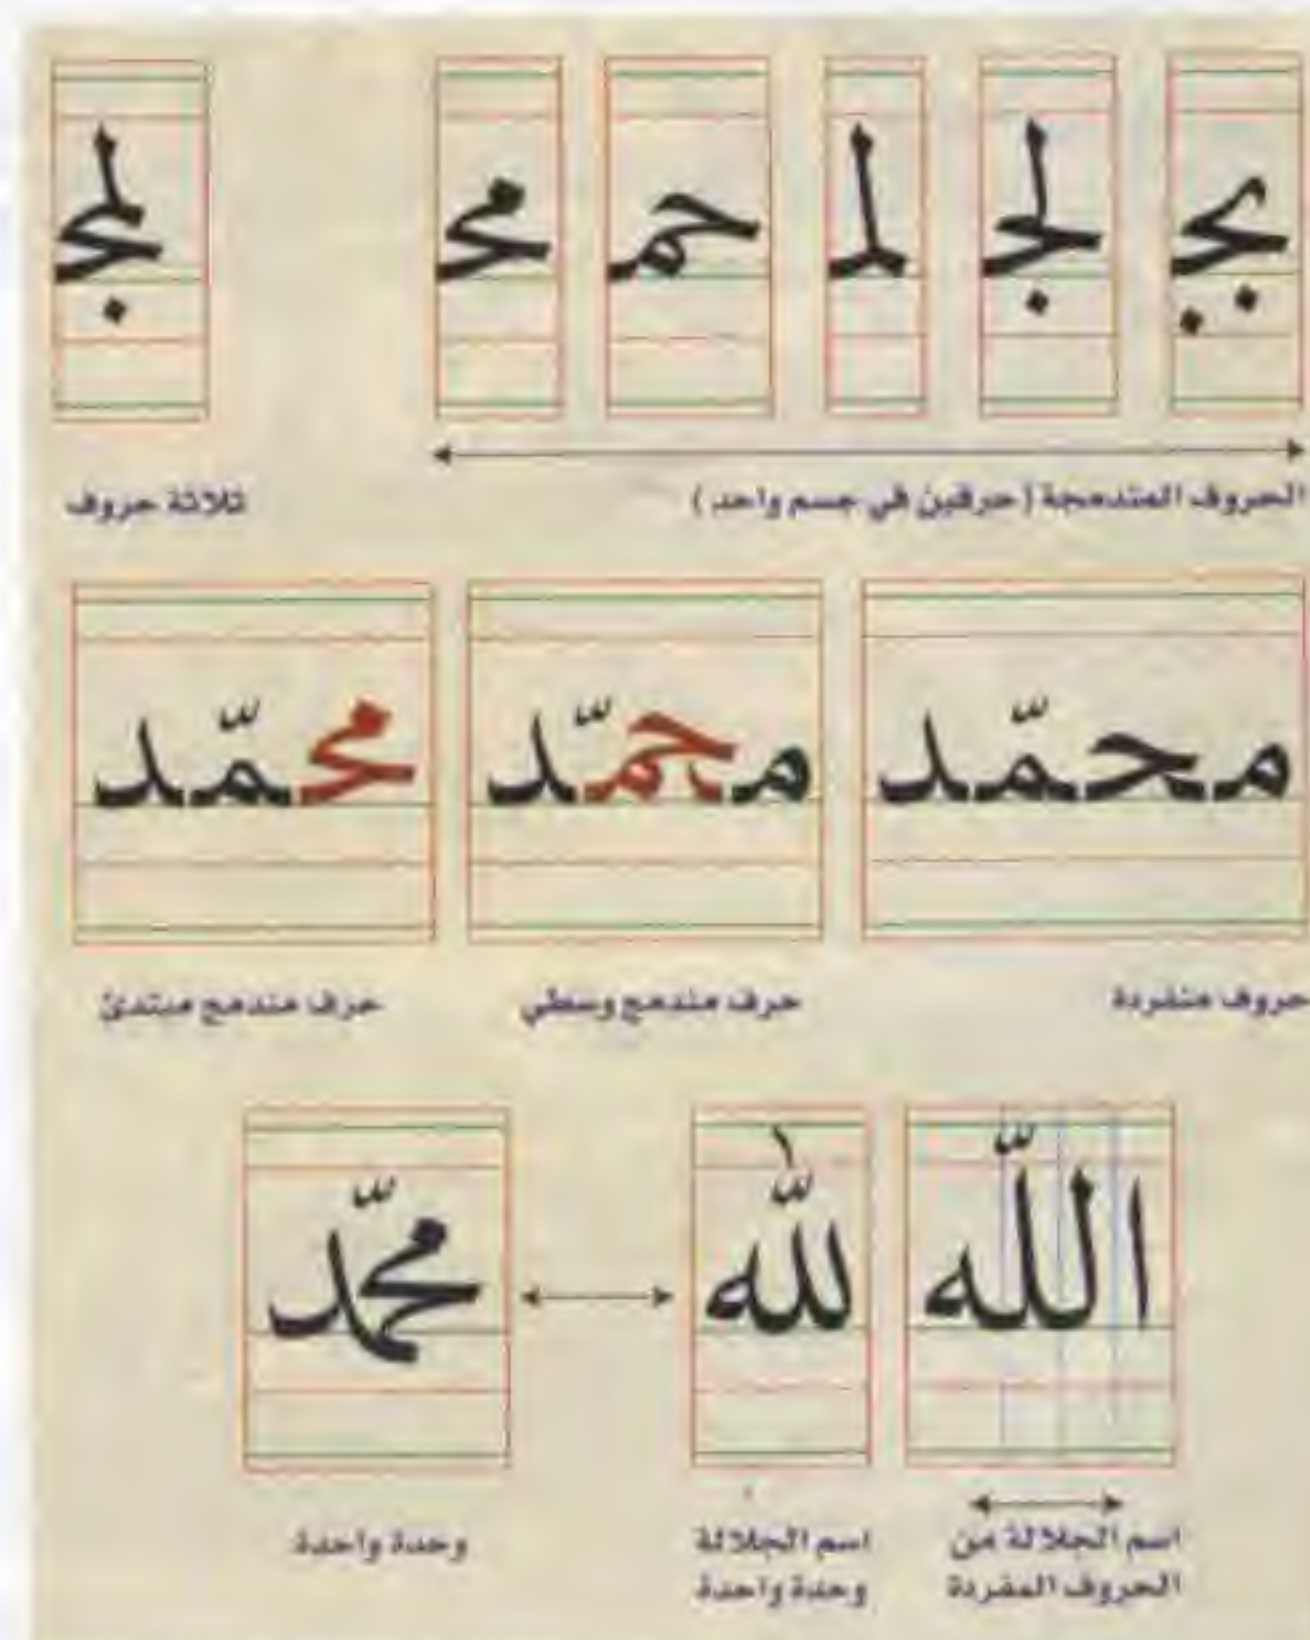 بج لجـ لمـ حمـ محـ لمجـ
الحروف المندمجة (حرفين في جسم واحد) ثلاثة حروف
محمّد محمّد محمّد
حروف منفردة حرف مندمج وسطي حرف مندمج مبتدئ
اللّه الله محمّد
اسم الجلالة من اسم الجلالة وحدة واحدة
الحروف المفردة وحدة واحدة